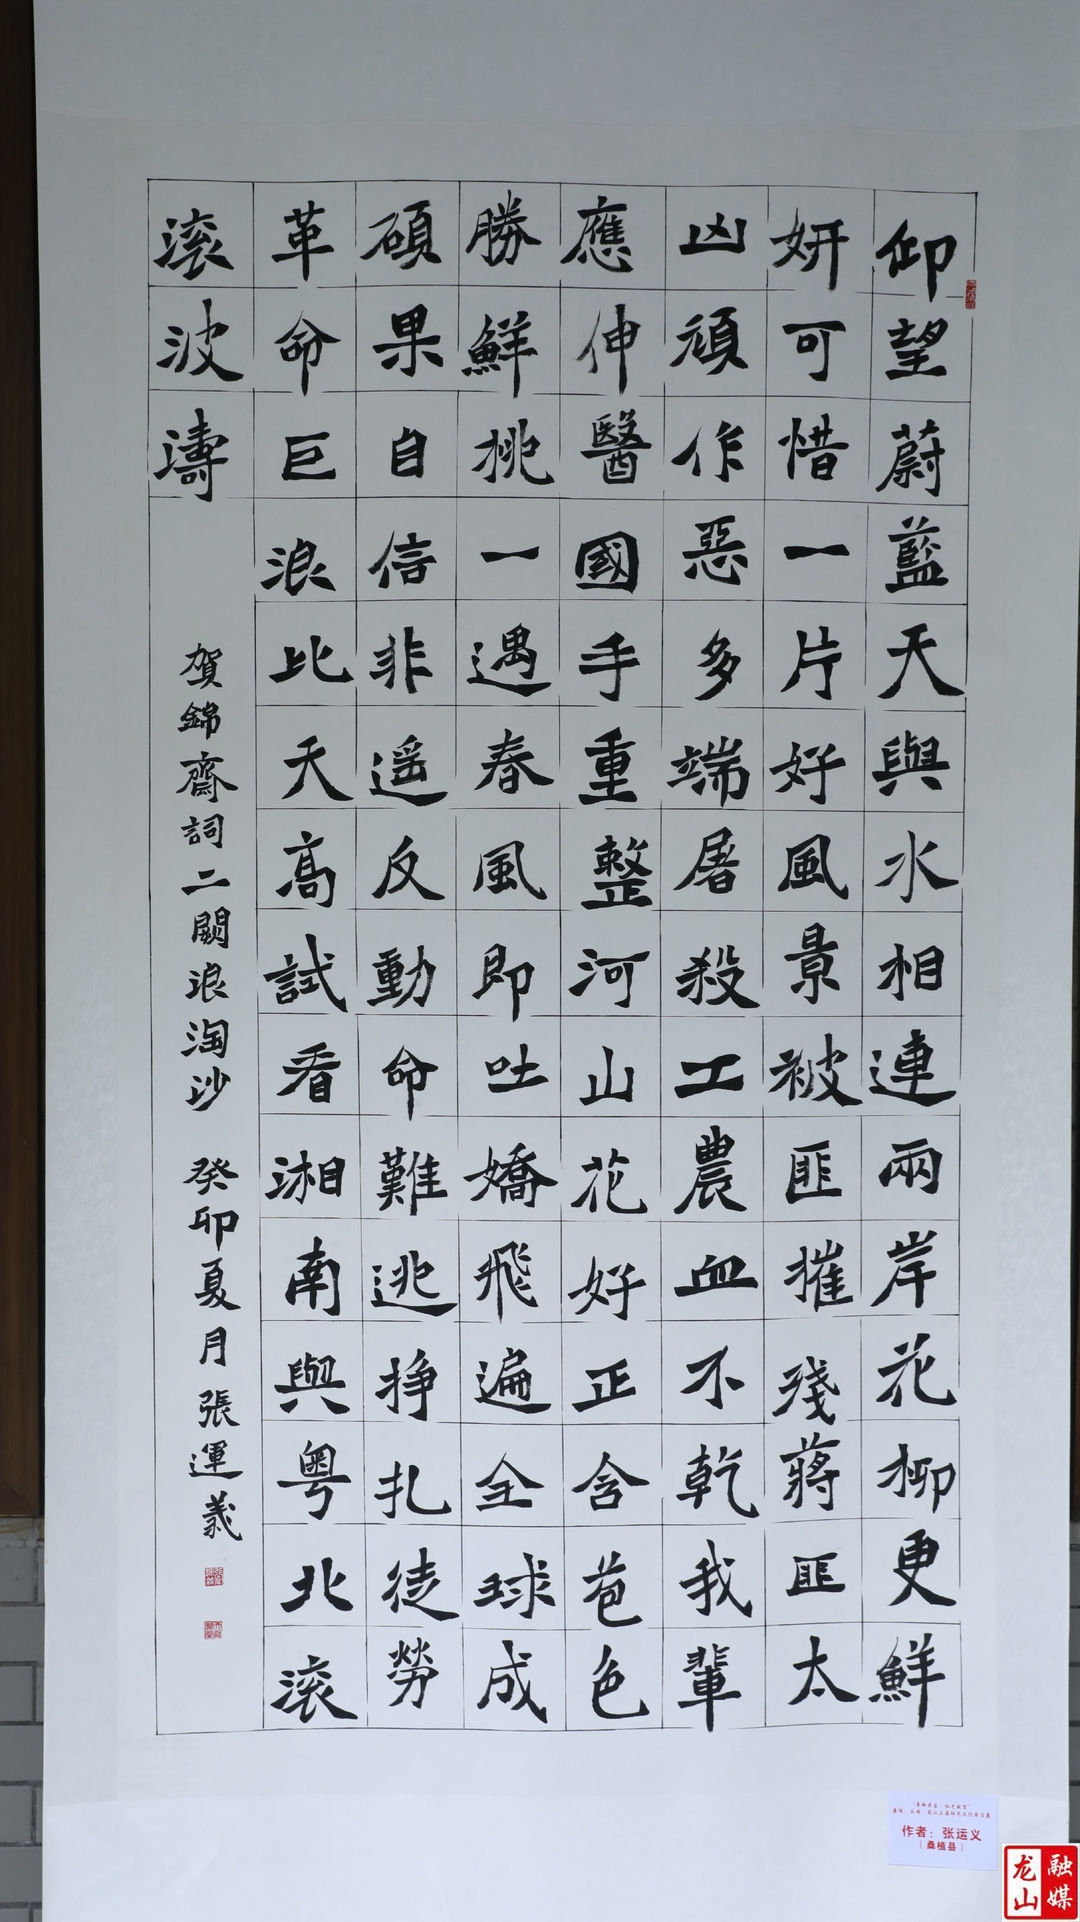 仰望蔚藍天與水相連兩岸花柳更鮮
妍可惜一片好風景被匪摧殘蔣匪太
凶頑作惡多端屠殺工農血不乾我輩
應伸醫國手重整河山花好正含苞色
勝鮮桃一遇春風即吐嬌飛遍全球成
碩果自信非遥反動命難逃掙扎徒勞
革命巨浪比天高試看湘南與粤北滚
滚波濤
賀錦齋詞二闋浪淘沙 癸卯夏月張運義
作者：张运义
（桑植县）
龙山
融媒